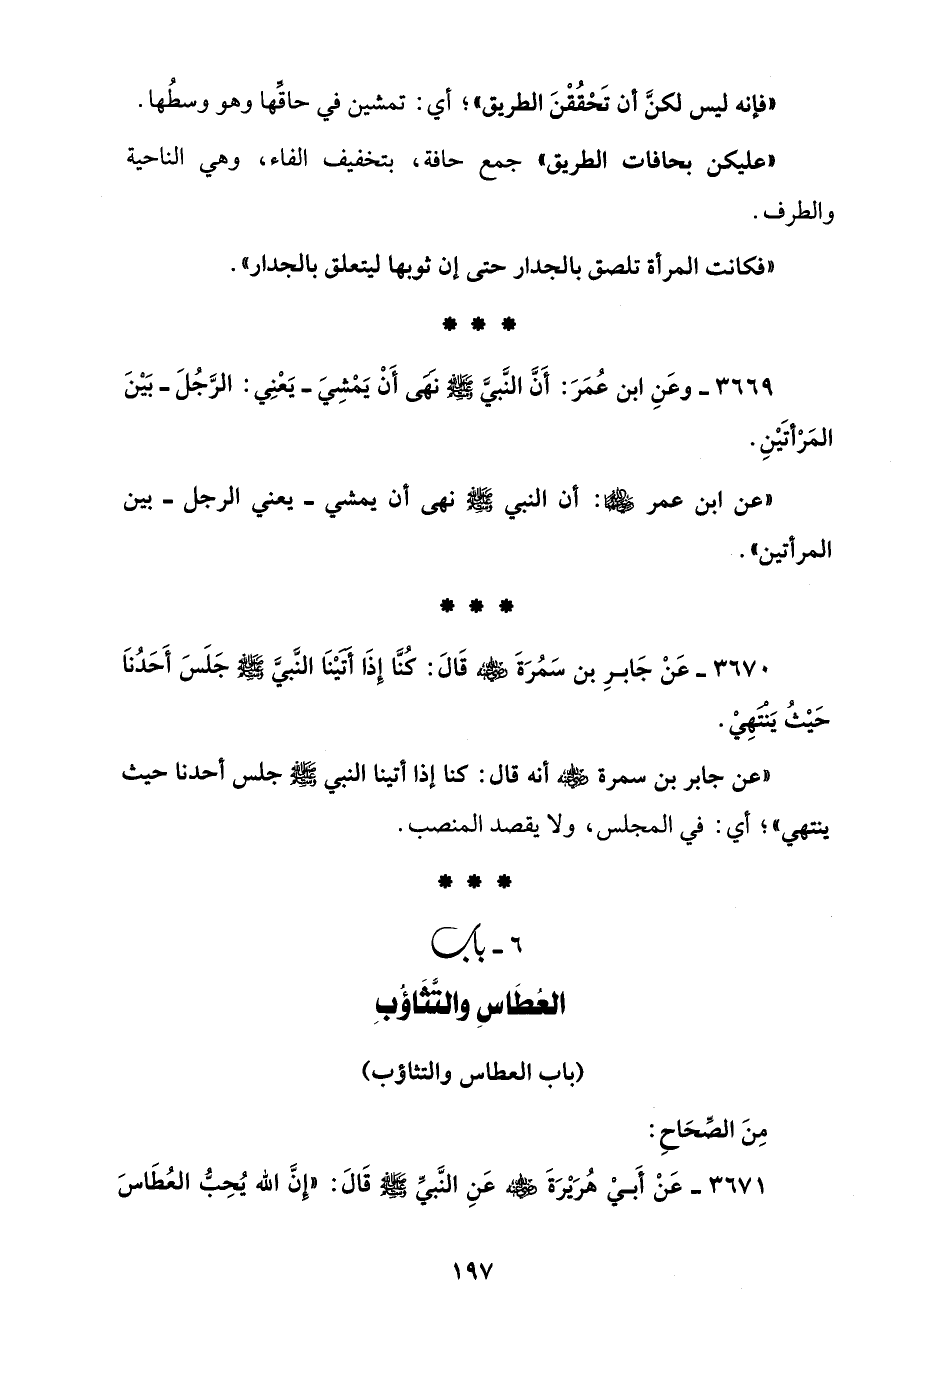 «فإنه ليس لكنَّ أن تَحْقُقْنَ الطريق»؛ أي: تمشين في حاقِّها وهو وسطُها.
«عليكن بحافات الطريق» جمع حافة، بتخفيف الفاء، وهي الناحية
والطرف.
«فكانت المرأة تلصق بالجدار حتى إن ثوبها ليتعلق بالجدار».
* * *
٣٦٦٩ ـ وعَنِ ابن عُمَرَ: أَنَّ النَّبيَّ ﷺ نَهَى أَنْ يَمْشِيَ ـ يَعْنِي: الرَّجُلَ ـ بَيْنَ
المَرْأتَيْنِ.
«عن ابن عمر ﵄: أن النبي ﷺ نهى أن يمشي ـ يعني الرجل ـ بين
المرأتين».
* * *
٣٦٧٠ ـ عَنْ جَابـرِ بن سَمُرَةَ ﵁ قَالَ: كُنَّا إِذَا أَتَيْنَا النَّبيَّ ﷺ جَلَسَ أَحَدُنَا
حَيْثُ يَنْتَهِيْ.
«عن جابر بن سمرة ﵁ أنه قال: كنا إذا أتينا النبي ﷺ جلس أحدنا حيث
ينتهي»؛ أي: في المجلس، ولا يقصد المنصب.
* * *
٦ ـ باب
العُطَاسِ والتَّثَاؤُبِ
(باب العطاس والتثاؤب)
مِنَ الصِّحَاحِ:
٣٦٧١ ـ عَنْ أَبـيْ هُرَيْرَةَ ﵁ عَنِ النَّبيِّ ﷺ قَالَ: «إِنَّ الله يُحِبُّ العُطَاسَ
١٩٧